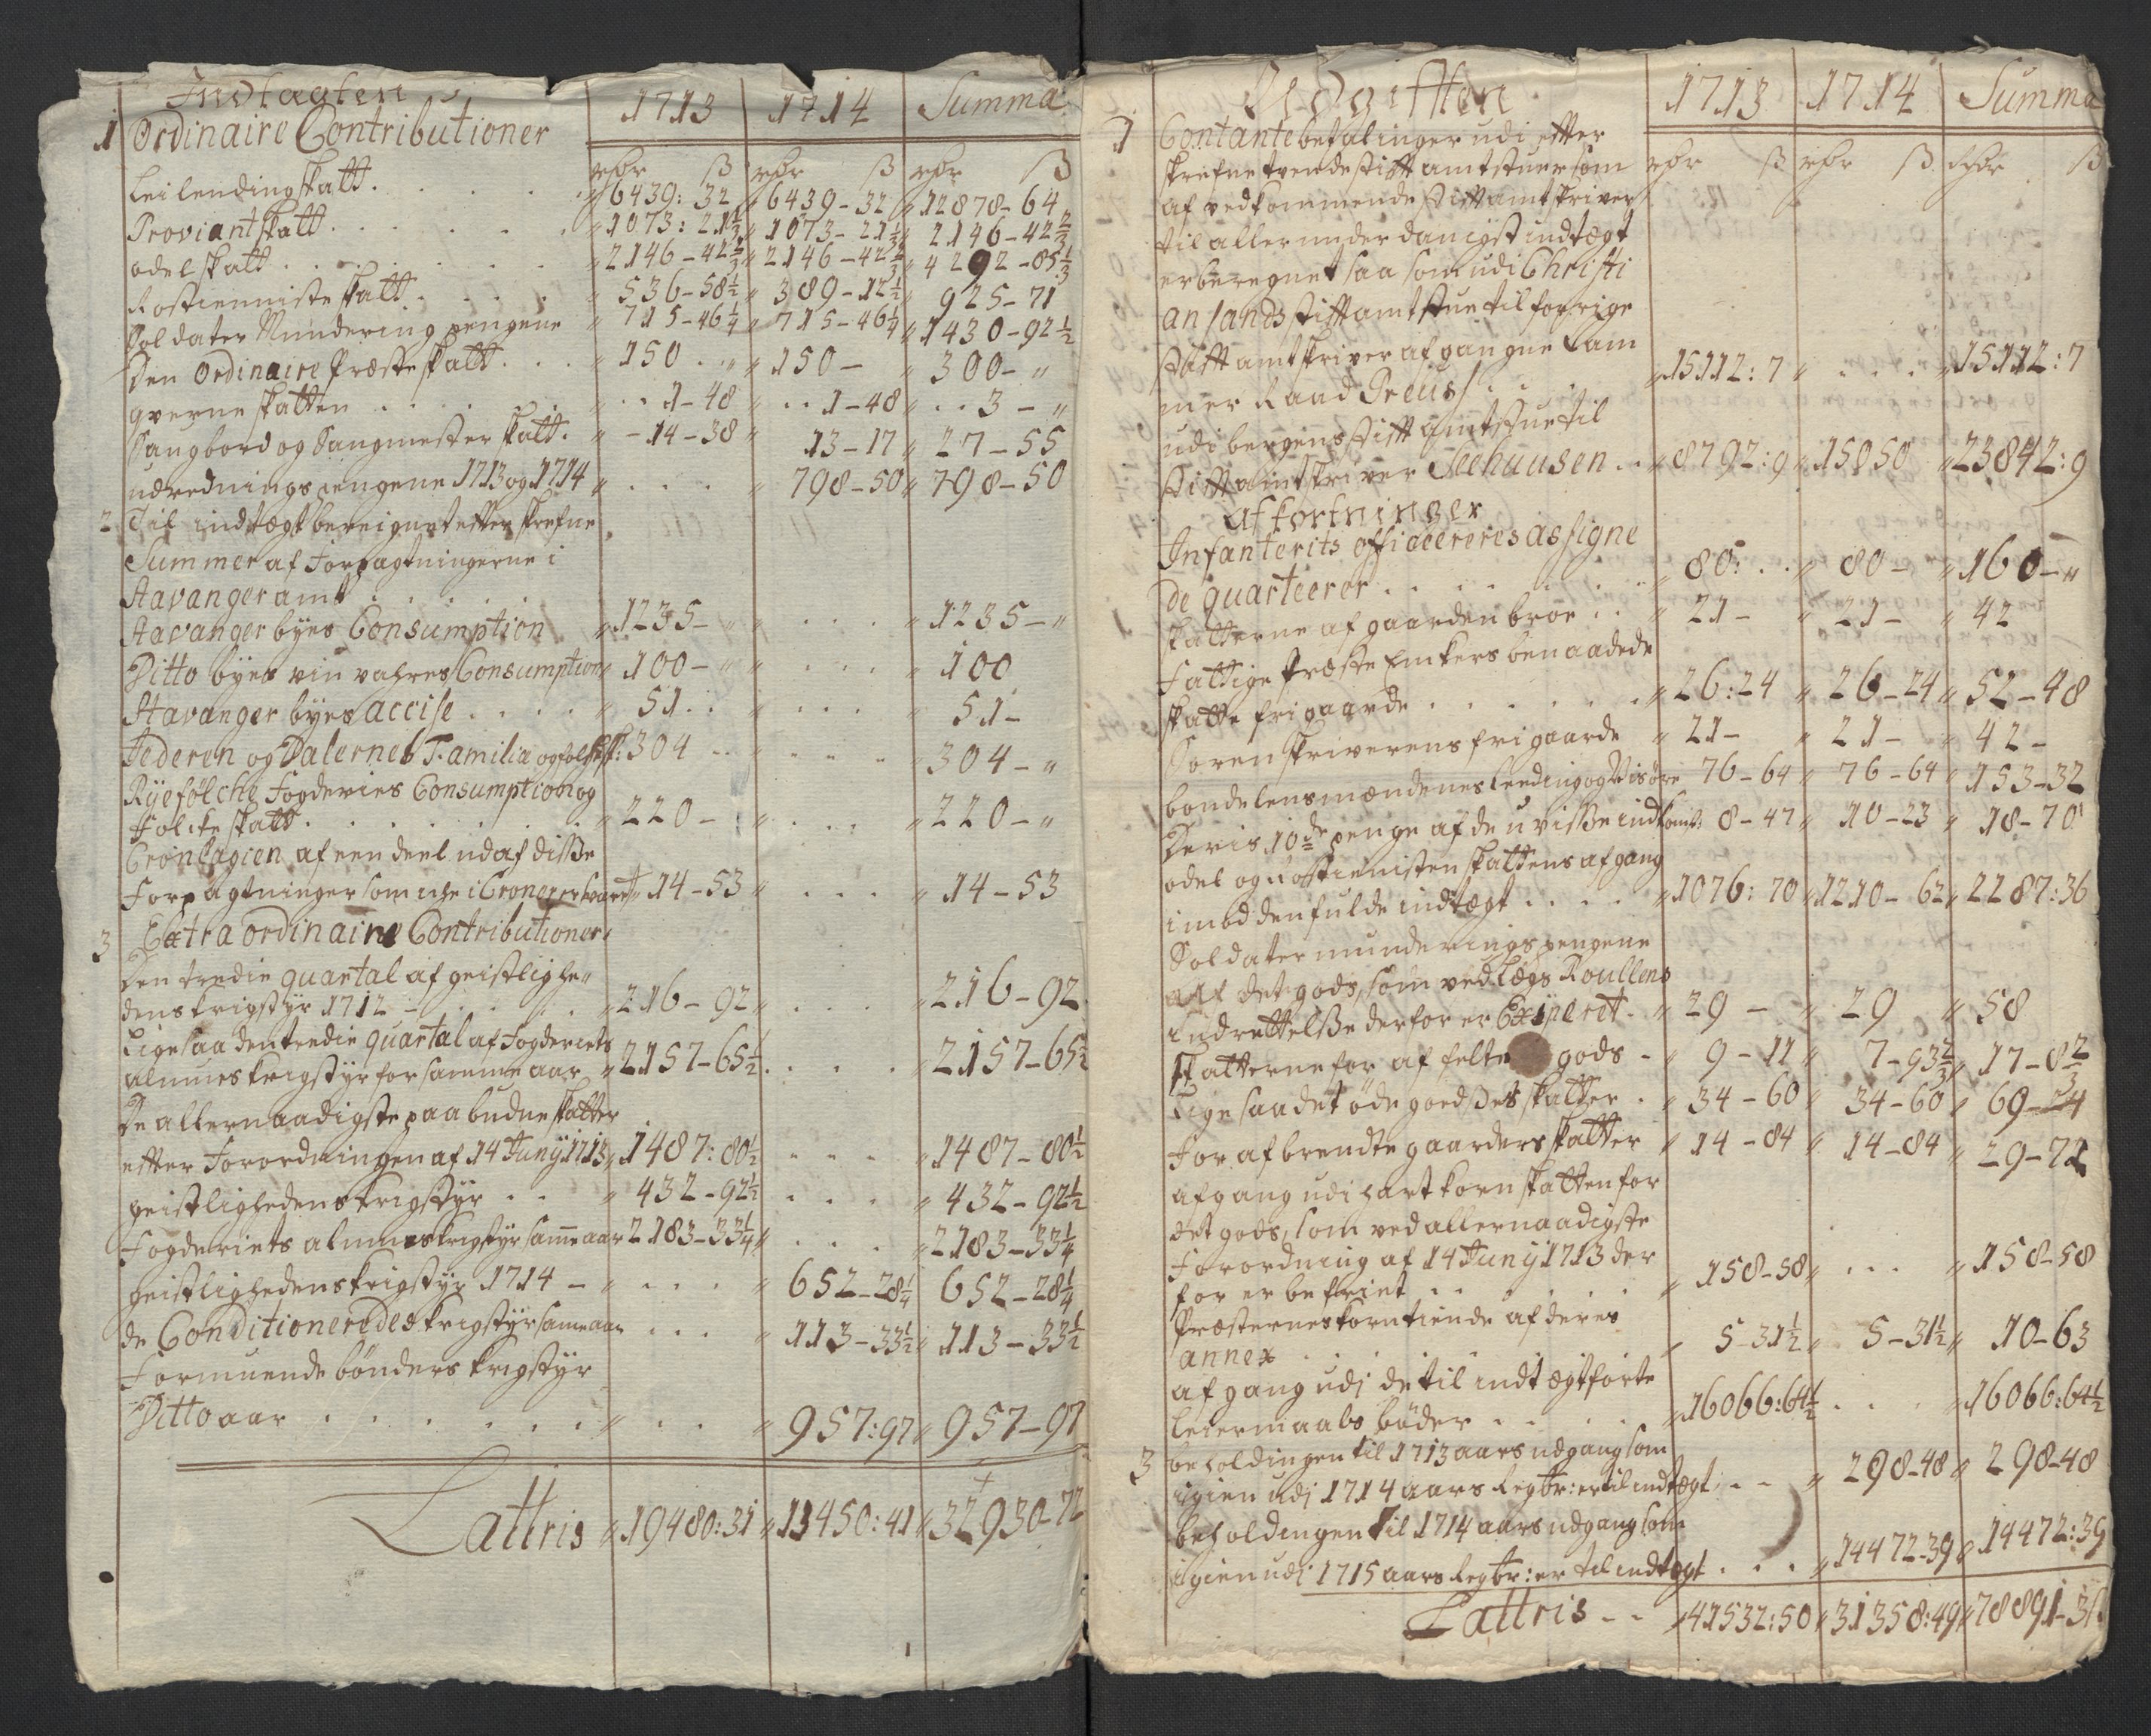 Indtagten
1713 1714 Summa
1 Ordinaire Contributioner
rdr ß rdr ß rdr ß
Leilending skatt . . . " 6439: 32 " 6439 - 32 " 12878 - 64
Proviantskatt . . . " 1073: 21⅓ " 1073 - 21⅓ " 2146 - 42⅔
odelskatt . . . " 2146 - 42⅔ " 2146 - 42⅔ " 4292 - 85⅓
Rostienniste skatt . . . " 536 - 58½ " 389 - 12½ " 925 - 71
Soldater Mundering pengene " 715 - 46¼ " 715 - 46¼ " 1430 - 92½
Den Ordinaire Præste skatt . . . " 150 . . " " 150 - " 300 - "
qverne skatten . . . " . . 1 - 48 " . . 1 - 48 " . . 3 - "
Saugbord og Saugmester skatt. " - 14 - 38 " 13 - 17 " 27 - 55
udrednings pengene 1713 og 1714 " . . . " 798 - 50 " 798 - 50
2 Til indtægt bereignet efterskrefne
Summer af Forpagtningerne i
Stavanger amt . . .
Stavanger byes Consumption " 1235 - " " . . . " 1235 - "
Ditto byes vin vahres Consumption " 100 - " " . . . " 100
Stavanger byes accise . . . " 51 . . " . . . " 51 -
Jederen og Dalernes Familia og folche sk: 304 - - " . . . " 304 - "
Ryefølche Fogderies Consumption og
Folcke skatt . . . " 220 - " . . . " 220 - "
Cronlagien af een deel udaf disse
Forpagtninger som iche i Croner er svaret " 14 - 53 " . . . " 14 - 53
3 Extra ordinaire Contributioner
Den tredie quartal af geistlighe"
dens krigstyr 1712 - . . . " 216 - 92 " . . . " 216 - 92
Ligesaa den tredie quartal af Fogderiets
almues krigstyr for samme aar " 2157 - 65½ . . . " 2157 - 65½
De allernaadigste paabudne skatter
efter Forordningen af 14 Juny 1713 " 1487: 80½ . . . " 1487 - 80½
geistlighedens krigstyr . . " 432 - 92½ . . . " 432 - 92½
Fogderiets almues krigstyr samme aar 2183 - 33¼ " . . . " 2183 - 33¼
geistlighedens krigstyr 1714 - " . . . " 652 - 28¼ 652 - 28¼
de Conditioneredes krigstyr same aar . . . " 113 - 33½ " 113 - 33½
Formuende bønders krigstyr
Ditto aar . . . " . . " 957: 97 " 957 - 97
Lattris " 19480: 31 " 13450: 41 " 32930 - 72
Udgifften
1713 1714 Summa
1 Contante betalinger udi efter
skrefne tvende stift amtstuer som rdr ß rdr ß rdr ß
af vedkommende Stiftamtskriver
til allerunderdanigst indtægt
er beregnet saa som udi Christi
ansands stiftamtstue til forrige
Stiftamtskriver afgangne Cam
mer Raad Preuss . . . " 15112: 7 " . . . " 15112: 7
udi bergens Stift amtstue til
Stiftamtskriver Seehuusen . . " 8792: 9 " 15050 " 23842: 9
Afkortninger
Infanteriets officcereres assigne
de quarteerer . . . " 80: . . " 80 - " 160 - "
skatterne af gaarden broe . . " 21 - " 21 - " 42
Fattige Præste Enkers benaadede
skatte fri gaarde . . . " 26: 24 " 26 - 24 " 52 - 48
Sorenskriverens fri gaarde " 21 - " 21 - " 42 -
bondelensmændenes Leeding og Visøre 76 - 64 " 76 - 64 " 153 - 32
Deris 10de penge af de uvisse indkomst: 8 - 47 " 10 - 23 " 18 - 70
odel og rostienisten skattens afgang
imod den fulde indtægt . . . " 1076: 70 " 1210 - 62 " 2287: 36
Soldater munderings pengene
Alf det gods, som ved Lægs Roullens
indrettelsse derfor er Exiperet. " 29 - " 29 " 58
Skatterne for affelte gods - " 9 - 11 " 7 - 93⅔ " 17 - 8⅔
Ligesaa det øde goedsses skatter . " 34 - 60 " 34 - 60 " 69 - 24
For afbrendte gaarders skatter " 14 - 84 " 14 - 84 " 29 - 72
afgang udi hartkorn skatten for
det gods, som ved allernaadigste
Forordning af 14 Juny 1713 der
for er befriet . . . " 158 - 58 " . . . " 158 - 58
Præsternes korntiende af deres
annex . . . " 5 - 31½ " 5 - 31½ " 10 - 63
afgang udi de til indtægt førte
leiermaals bøder . . . " 16066: 64½ . . . " 16066: 64½
3 beholdingen til 1713 aars udgang som
igien udj 1714 aars Regbr: er til indtægt . - - " 298 - 48 " 298 - 48
beholdingen til 1714 aars udgang som
igien udj 1715 aars Regbr: er til indtægt . . . " 14472 - 39 " 14472: 39
Lattris - - " 41532: 50 " 31358: 49 " 78891 - 3